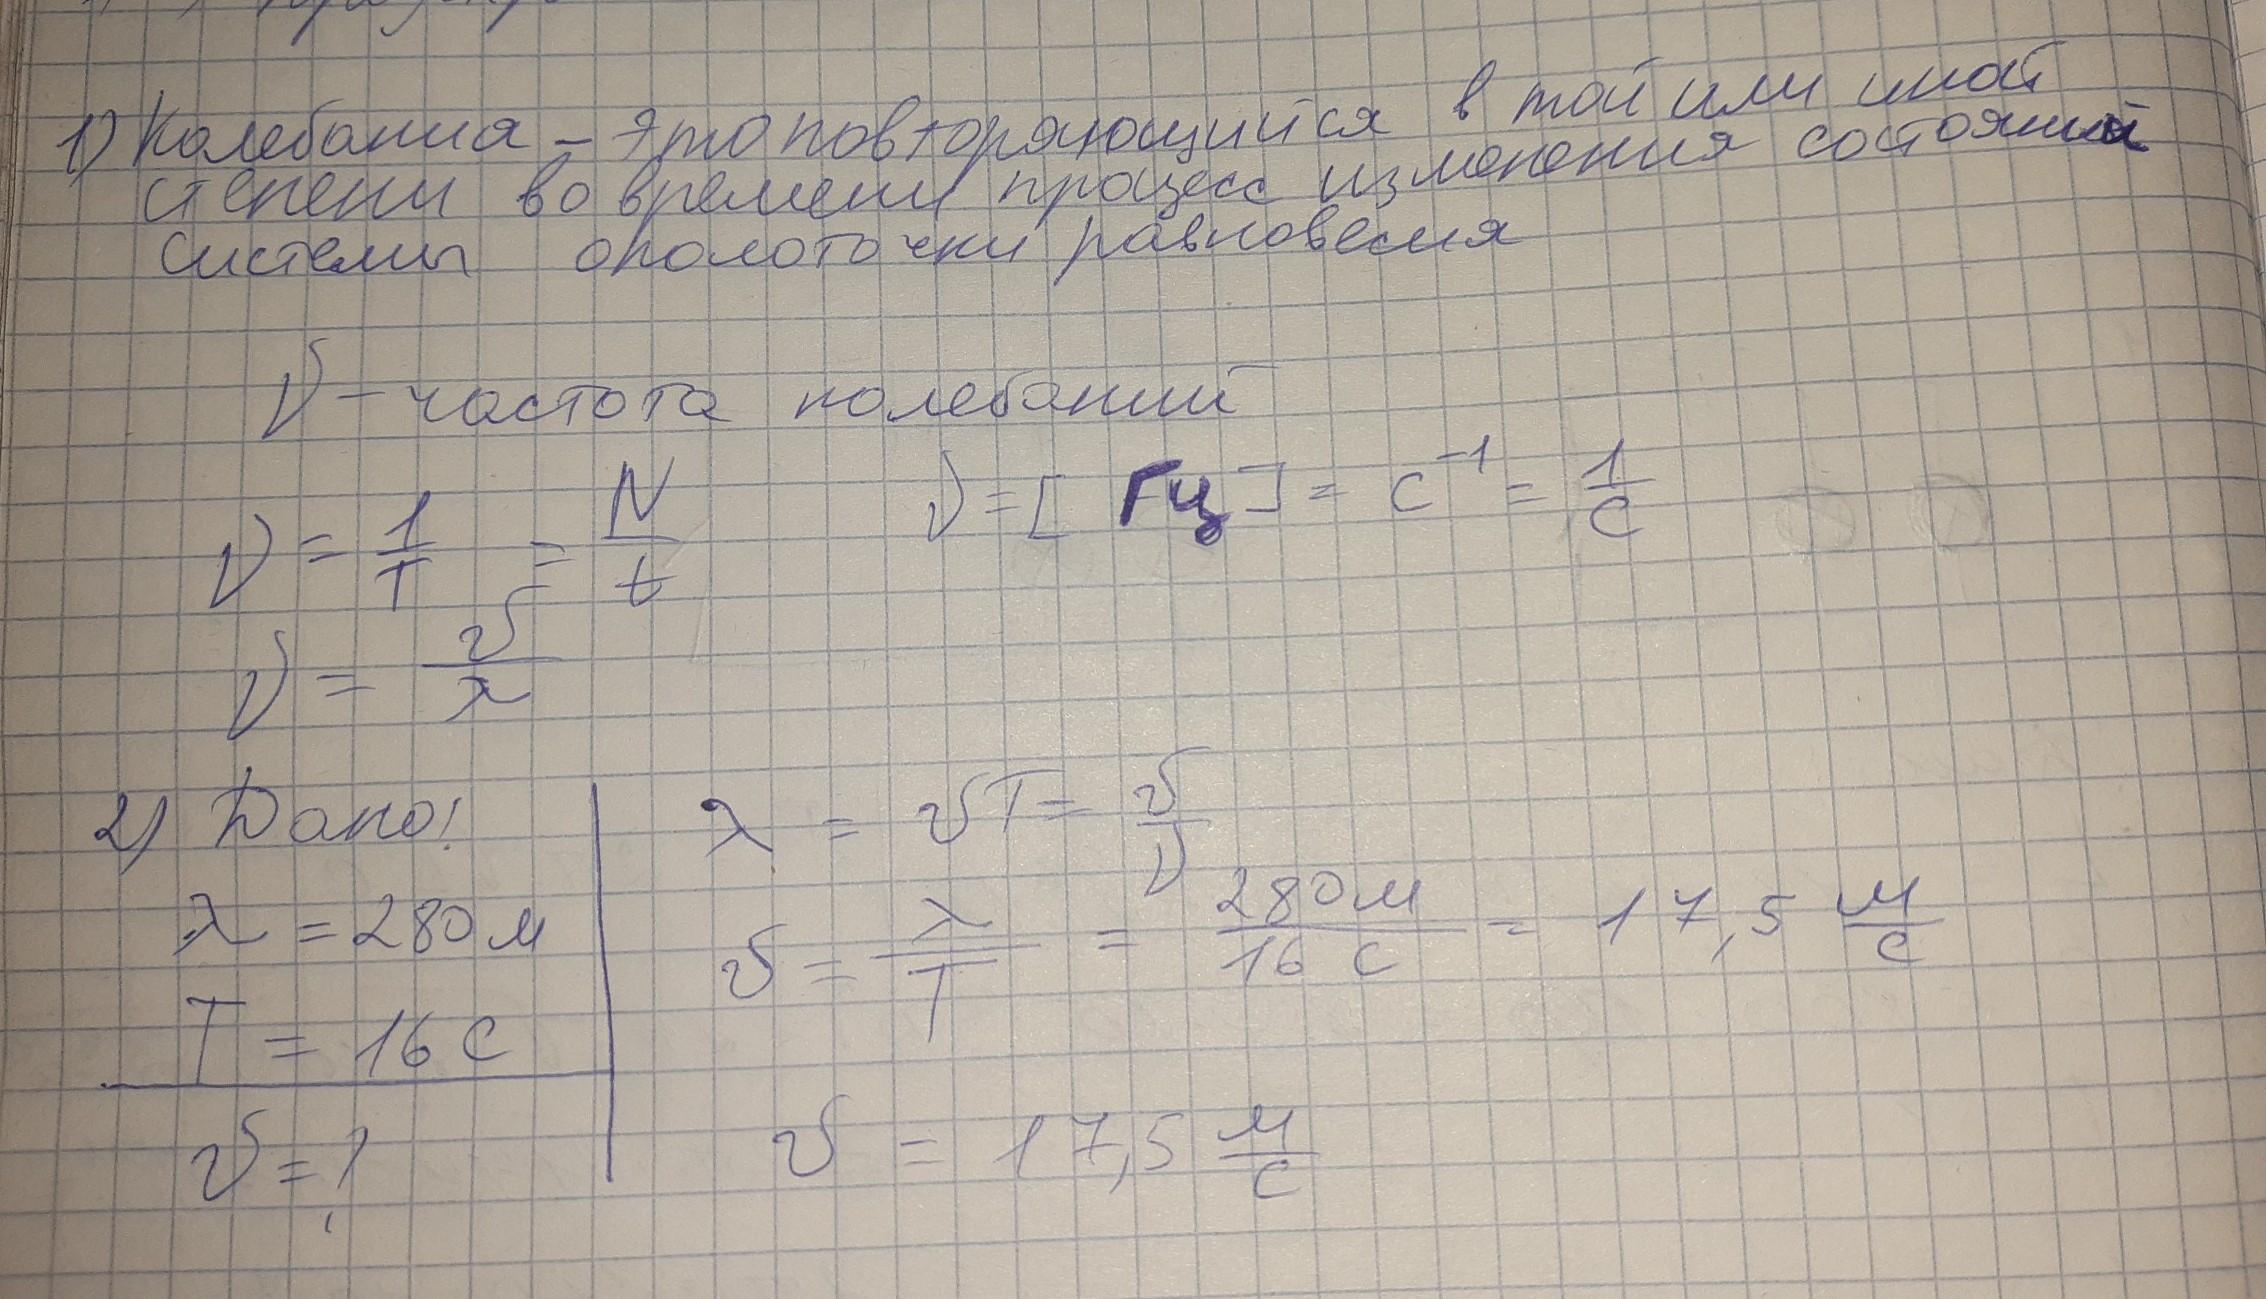 1) Колебания – это повторяющийся в той или иной
степени во времени процесс изменения состояний
системы около точки равновесия
ν – частота колебаний
ν = 1/T = N/t ν = [Гц] = с⁻¹ = 1/с
ν = υ/λ
2) Дано: λ = υT = υ/ν
λ = 280 м υ = λ/T = 280 м/16 с = 17,5 м/с
T = 16 с
υ = ? υ = 17,5 м/с